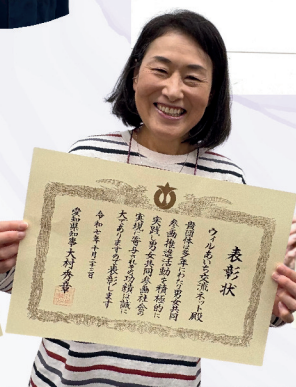 表彰状
ウィルあいち交流ネット殿
貴団体は多年にわたり男女共同
参画推進活動を積極的に
実践し男女共同参画社会の
実現に寄与された功績は誠に
大でありますので表彰します
令和七年十月二十二日
愛知県知事大村秀章